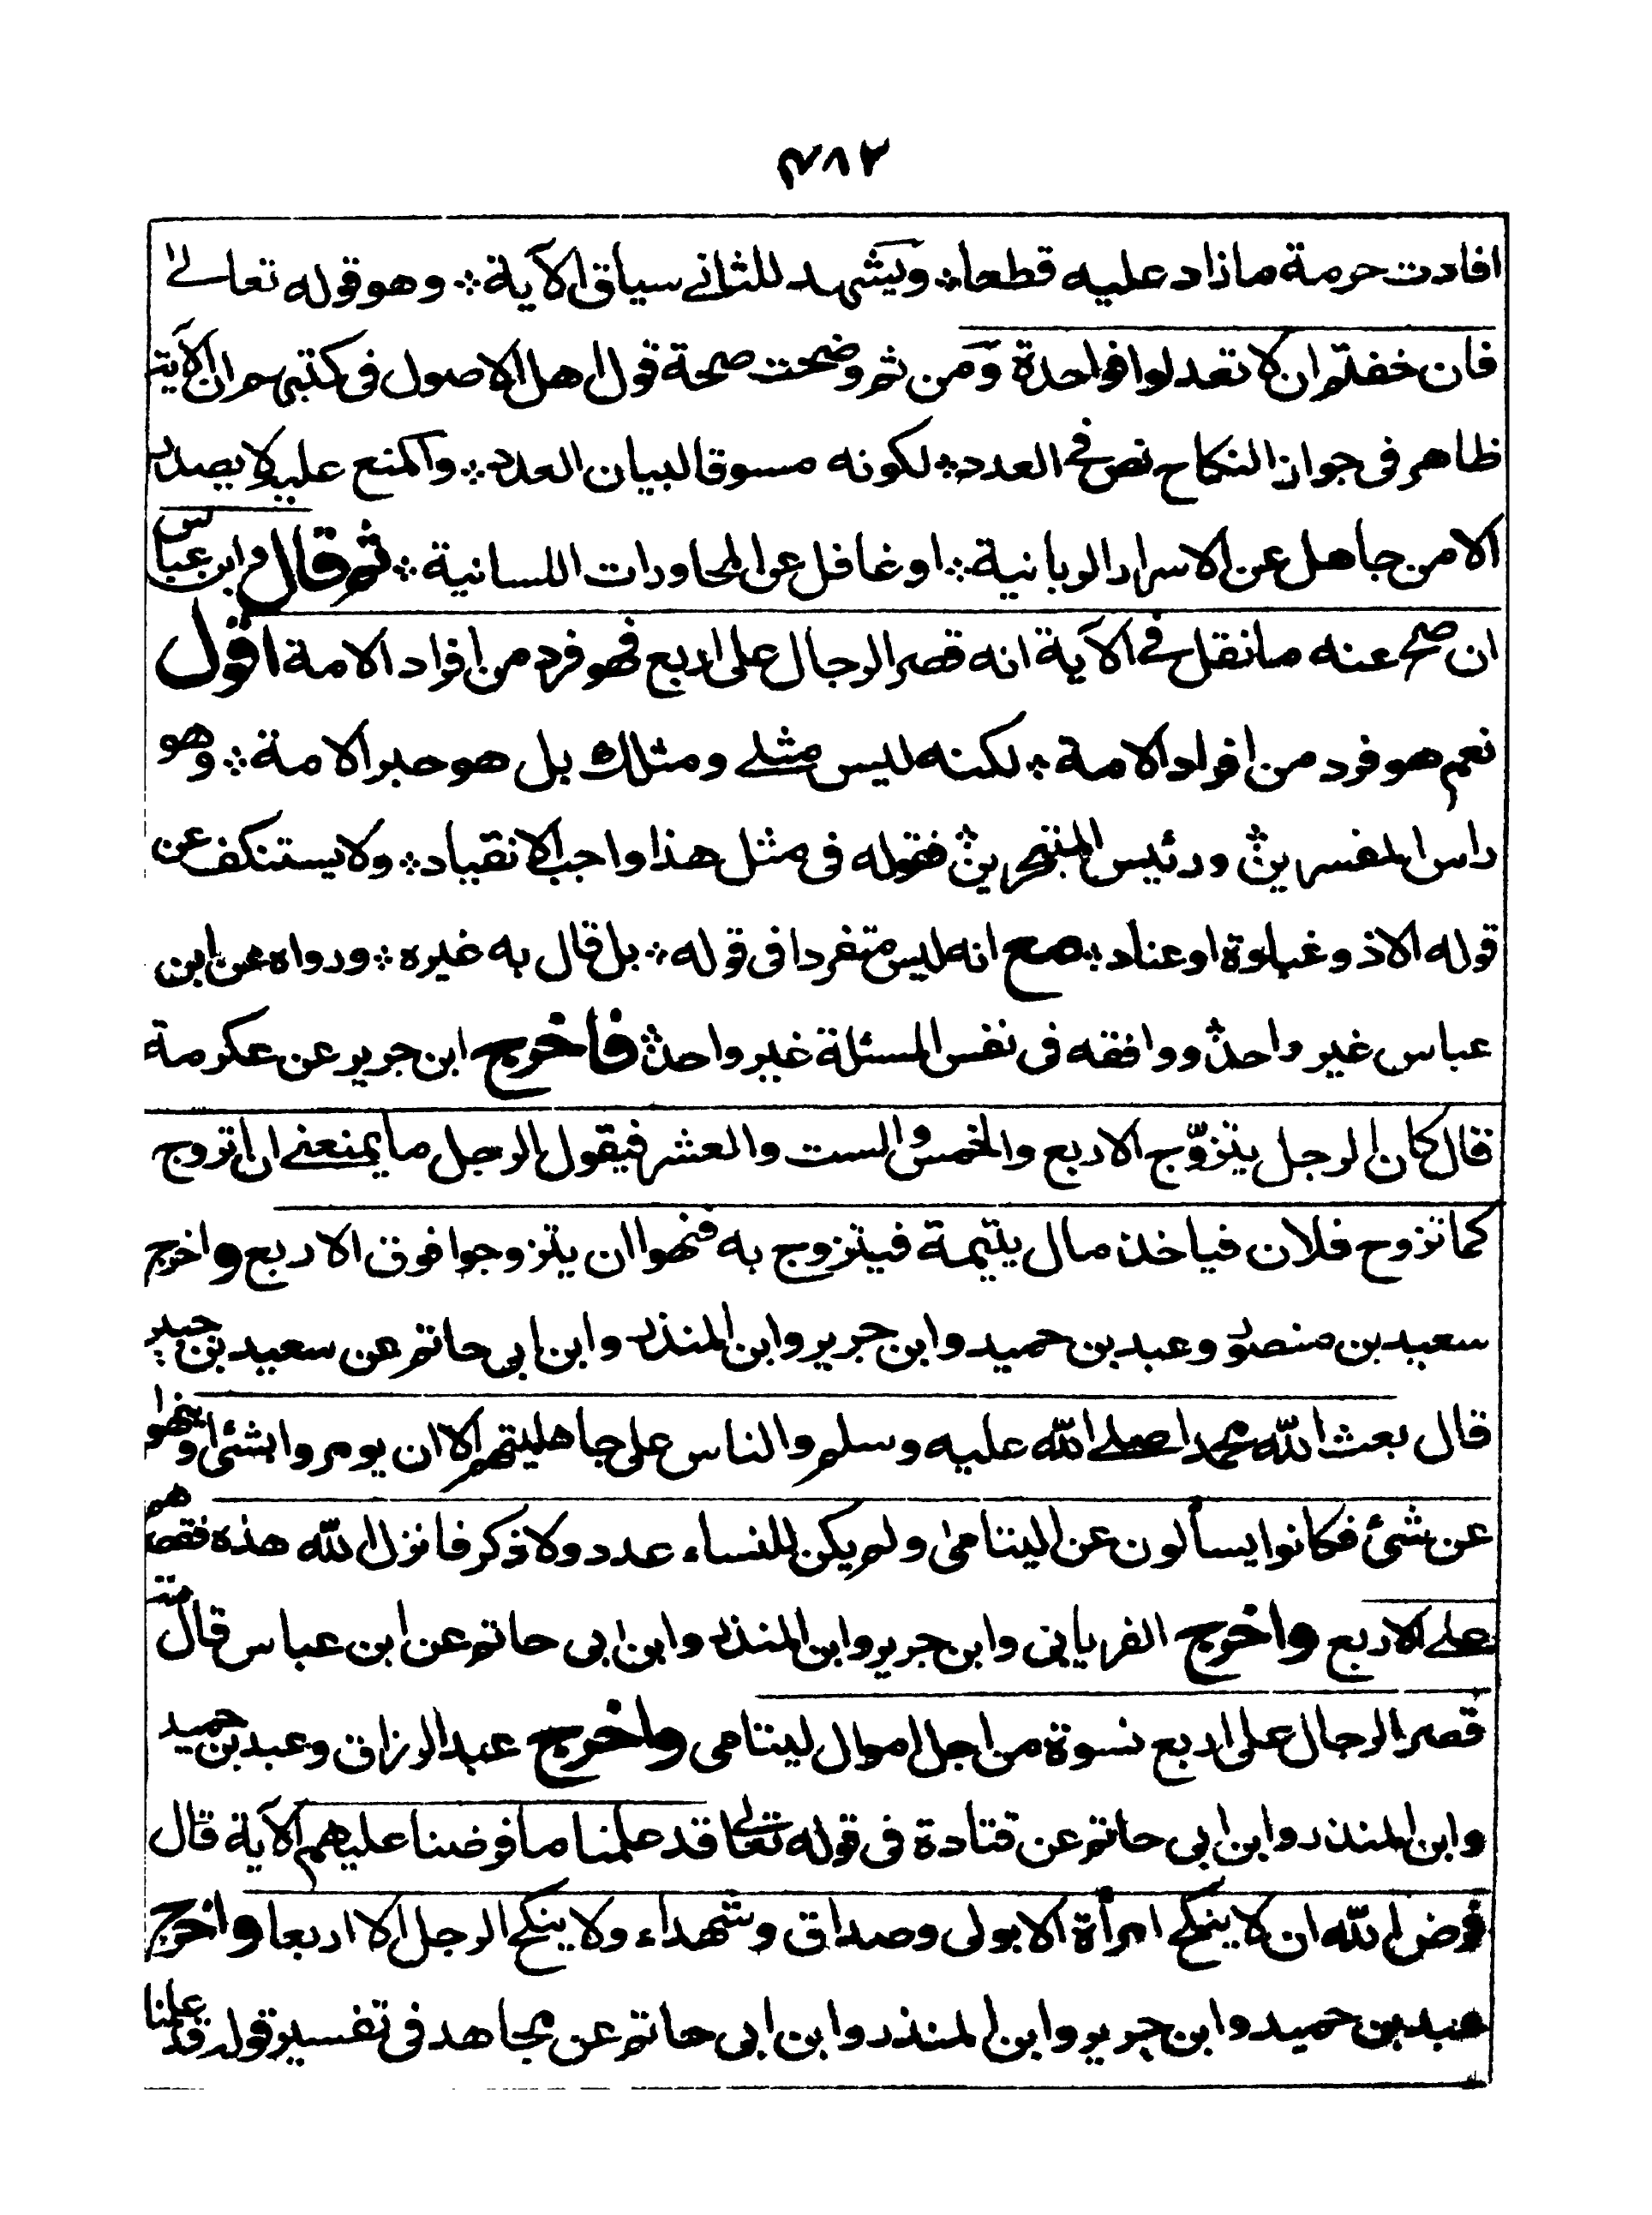 ٢٨٢
افادت حرمة ما زاد عليه قطعا؞ ويشهد للثانى سياق الآية؞ وهو قوله تعالى
فان خفتم ان لا تعدلوا فواحدة ومن ثم وضحت صحة قول اهل الاصول فى كتبهم ان الآية
ظاهر فى جواز النكاح نص فى العدد؞ لكونه مسوقا لبيان العدد؞ والمنع عليه لا يصدر
الا من جاهل عن الاسرار الربانية؞ او غافل عن المحاورات اللسانية؞ ثم قال وابن عباس
ان صح عنه ما نقل فى الآية انه قصر الرجال على اربع فهو فرد من افراد الامة اقول
نعم هو فرد من افراد الامة؞ لكنه ليس مثلى ومثلك بل هو حبر الامة؞ وهو
راس المفسرين؞ ورئيس المتبحرين؞ فقوله فى مثل هذا واجب الانقياد؞ ولا يستنكف عن
قوله الا ذو غباوة او عناد؞ مع انه ليس متفردا فى قوله؞ بل قال به غيره؞ ورواه عن ابن
عباس غير واحد؞ ووافقه فى نفس المسئلة غير واحد؞ فاخرج ابن جرير عن عكرمة
قال كان الرجل يتزوّج الاربع والخمس والست والعشر فيقول الرجل ما يمنعنى ان اتزوج
كما تزوج فلان فياخذ مال يتيمة فيتزوج به فنهوا ان يتزوجوا فوق الاربع واخرج
سعيد بن منصور وعبد بن حميد وابن جرير وابن المنذر وابن ابى حاتم عن سعيد بن جبير
قال بعث الله محمدا صلى الله عليه وسلم والناس على جاهليتهم الا ان يومروا بشئ او ينهوا
عن شئ فكانوا يسألون عن اليتامى ولم يكن للنساء عدد ولا ذكر فانزل الله هذه فقصرهم
على الاربع واخرج الفريابى وابن جرير وابن المنذر وابن ابى حاتم عن ابن عباس قال
قصر الرجال على اربع نسوة من اجل اموال ليتامى واخرج عبد الرزاق وعبد بن حميد
وابن المنذر وابن ابى حاتم عن قتادة فى قوله تعالى قد علمنا ما فرضنا عليهم الآية قال
فرض الله ان لا ينكح امرأة الا بولى وصداق وشهداء ولا ينكح الرجل الا اربعا واخرج
عبد بن حميد وابن جرير وابن المنذر وابن ابى حاتم عن مجاهد فى تفسير قوله قد علمنا